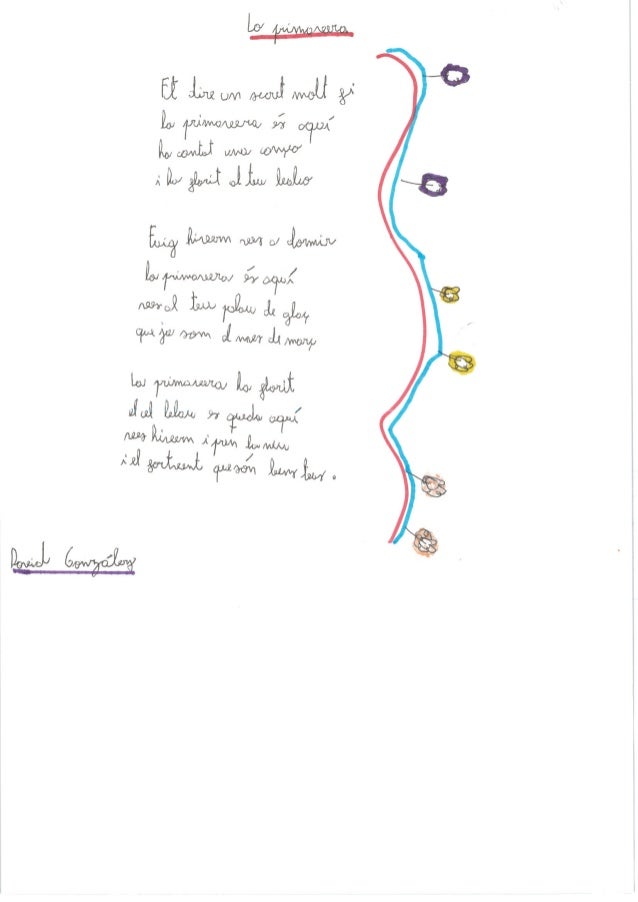 La primavera
Et dire un secret molt fi
la primavera és aquí
ha cantat una
i ha florit al teu
Fuig hivern ves a dormir
la primavera és aquí
ves al teu palau de glaç
que ja som al mes de març
La primavera ha florit
el cel blau es queda aquí
ves hivern i pren la neu
i el fort vent que són bens teus.
David González